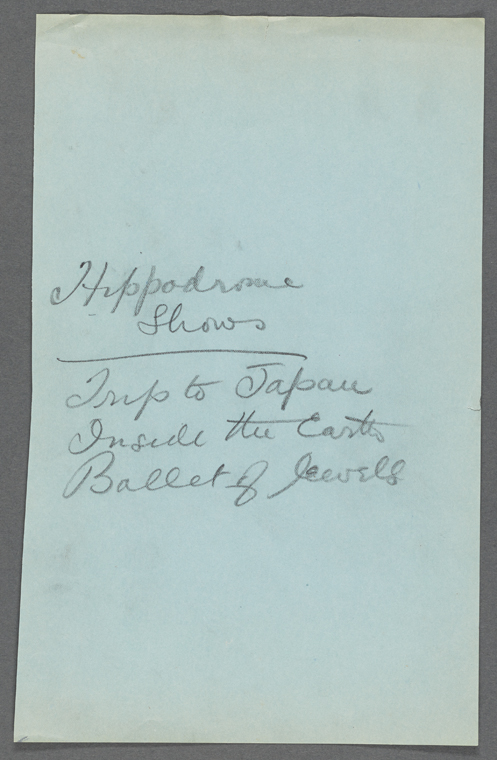 Hippodrome
Shows
Trip to Japan
Inside the Earth
Ballet of Jewels